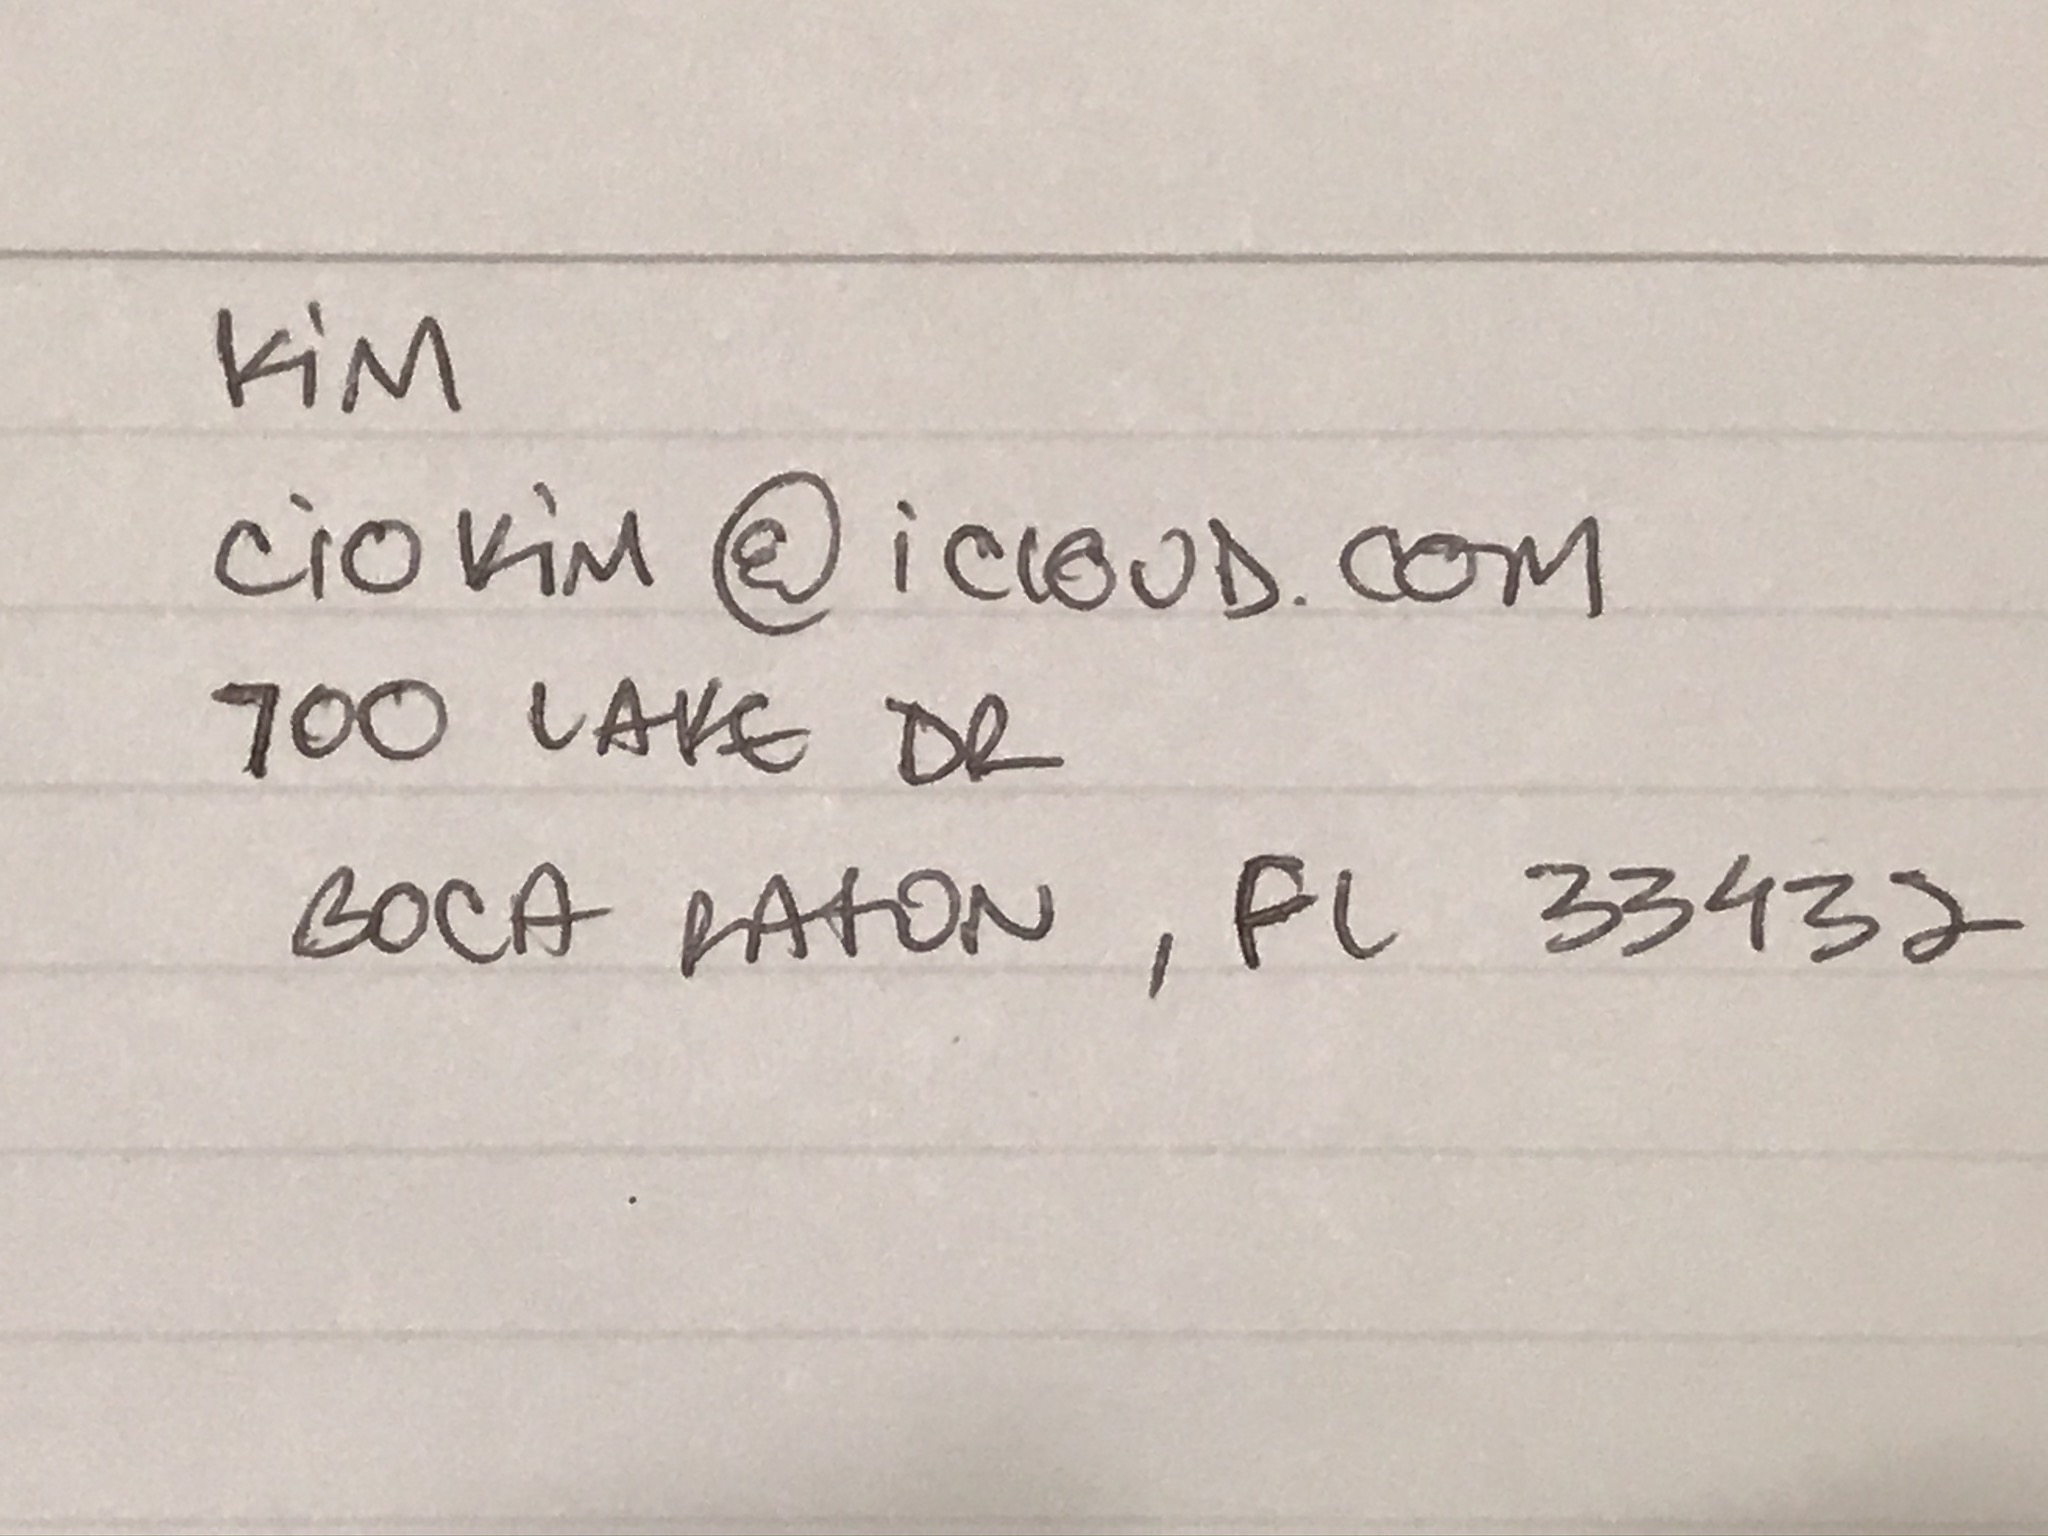 KiM
CiOKiM@iCLOUD.COM
700 LAKE DR
BOCA RATON, FL 33432